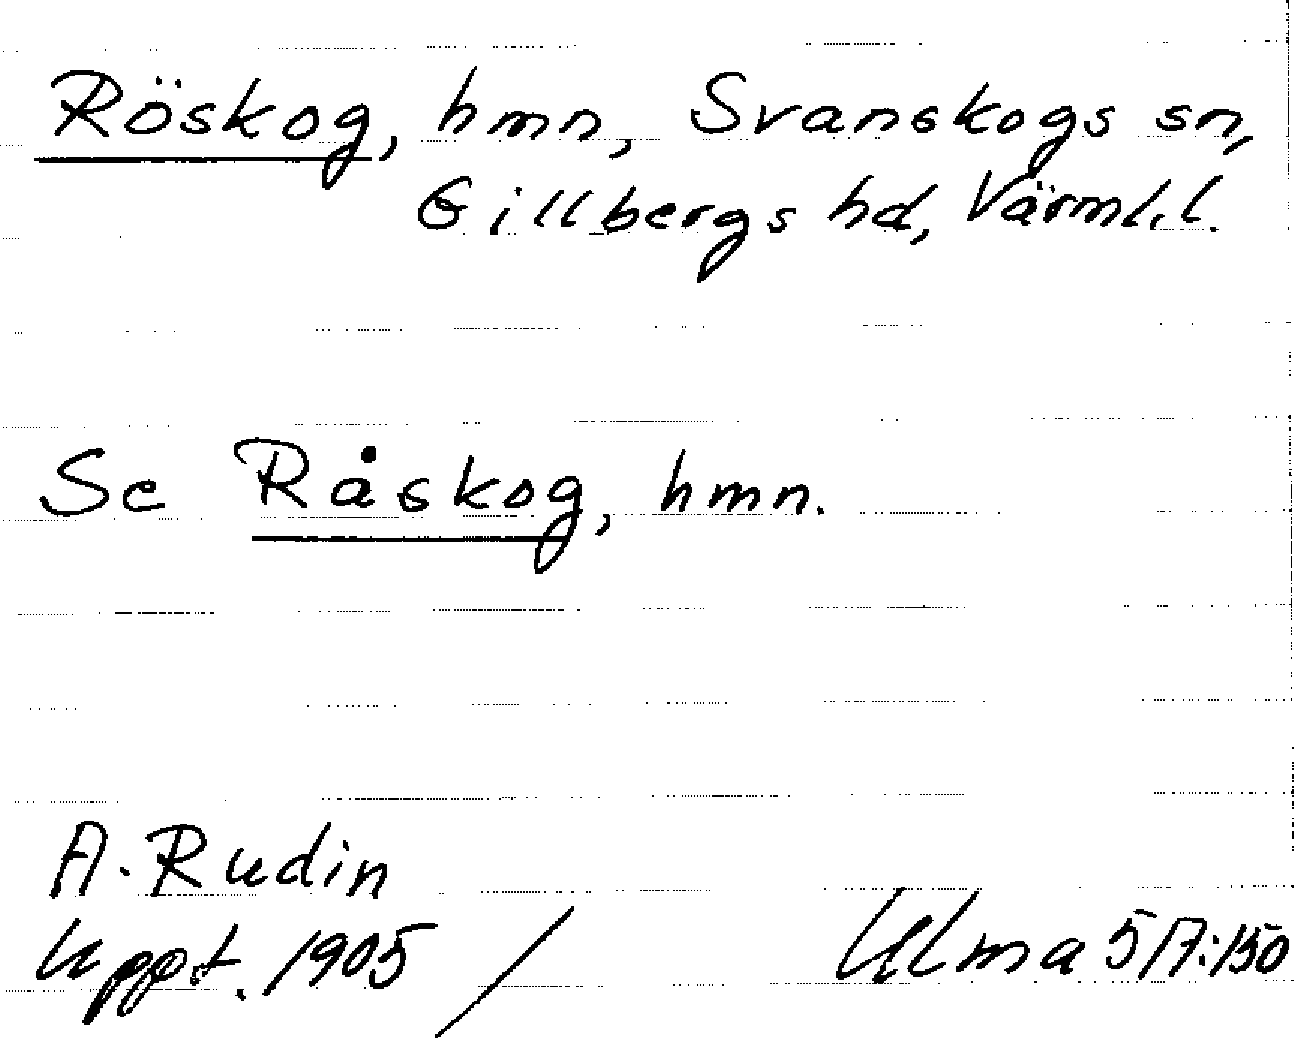 Röskog, hmn, Svanskogs sn,
Gillbergs hd, Värml.l.
Se Råskog, hmn.
A. Rudin
Uppt. 1905 / Ulma 517:150